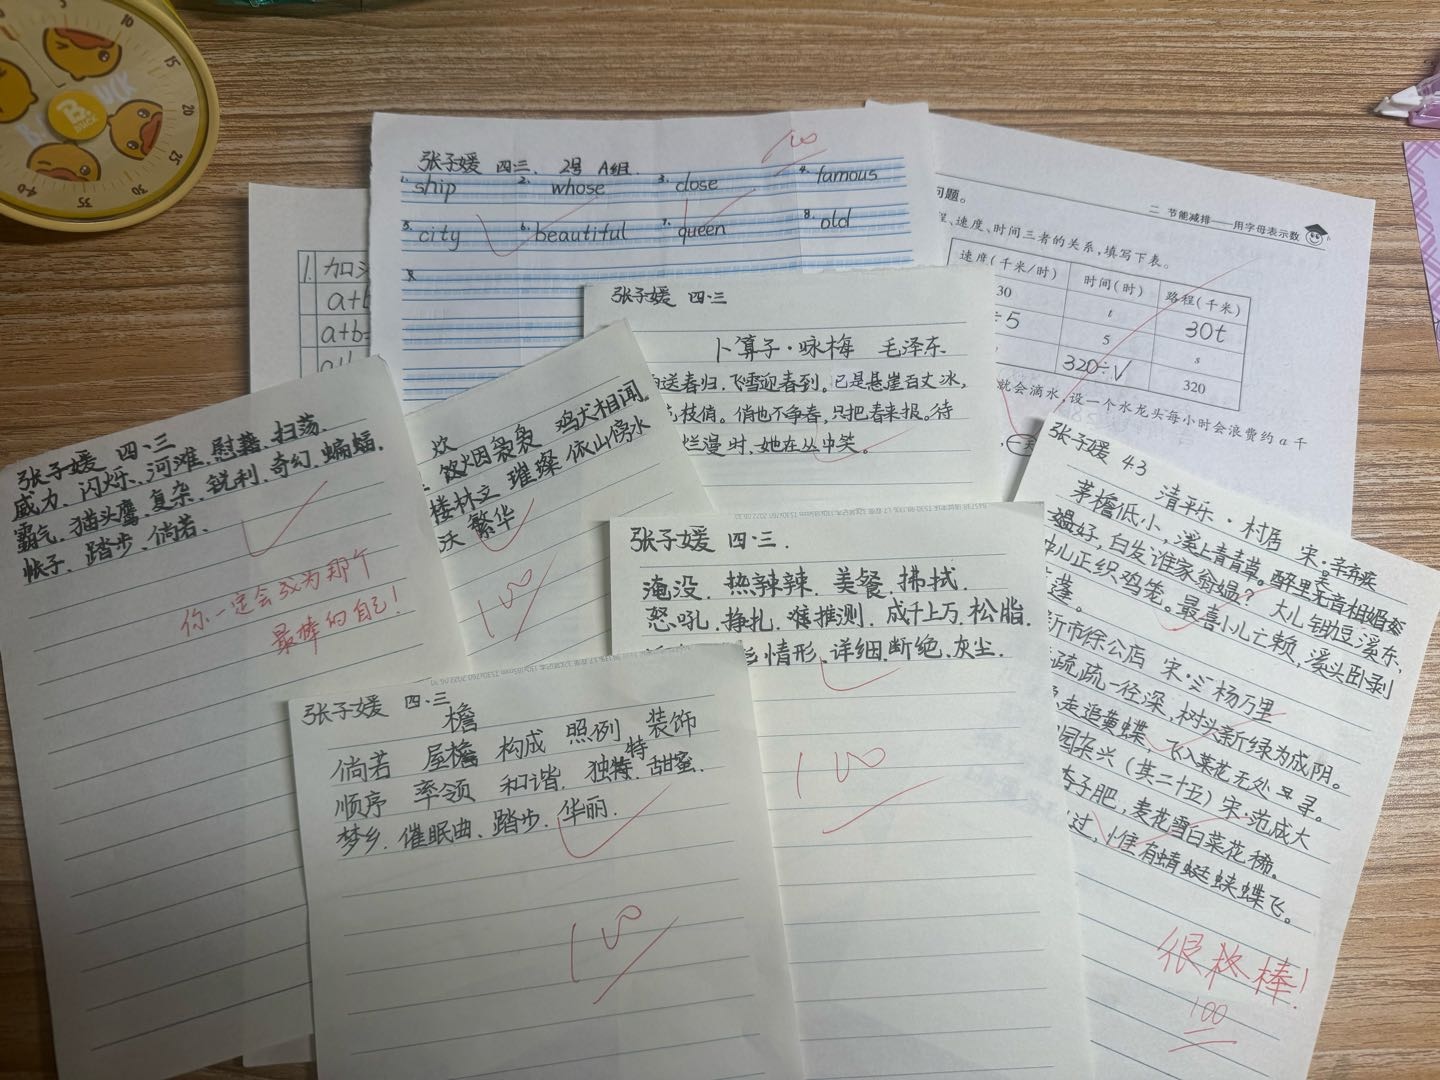 5
10
15
20
25
30
35
40
B.
DUCK
张子媛 四·三. 2号 A组.
1. ship 2. whose 3. close 4. famous
5. city 6. beautiful 7. queen 8. old
100
二 节能减排——用字母表示数
问题。
程、速度、时间三者的关系,填写下表。
速度(千米/时) 时间(时) 路程(千米)
30 t 30t
÷5 5 s
320÷V 320
就会滴水,设一个水龙头每小时会浪费约 a 千
1. 加
a+b
a+b=
张子媛 四·三
卜算子·咏梅 毛泽东
送春归,飞雪迎春到。已是悬崖百丈冰,
枝俏。俏也不争春,只把春来报。待
烂漫时,她在丛中笑。
炊
饮烟袅袅 鸡犬相闻.
楼林立 璀璨 依山傍水
沃 繁华
100
张子媛 四·三
威力、闪烁、河滩、慰藉、扫荡.
霸气、猫头鹰、复杂、锐利、奇幻、蝙蝠,
帐子、踏步、倘若.
你一定会成为那个
最棒的自己!
张子媛 四·三.
淹没、热辣辣、美餐、拂拭.
怒吼、挣扎、推测、成千上万、松脂.
情形、详细、断绝、灰尘.
100
张子媛 四·三
檐
倘若 屋檐 构成 照例 装饰
特
顺序 率领 和谐. 独特、甜蜜.
梦乡、催眠曲、踏步、华丽.
100
张子媛 4.3
清平乐·村居 宋·辛弃疾
茅檐低小,溪上青青草。醉里吴音相媚好
好,白发谁家翁媪?大儿锄豆溪东,
儿正织鸡笼。最喜小儿亡赖,溪头卧剥
莲蓬。
新市徐公店 宋·杨万里
疏疏一径深,树头新绿未成阴。
走追黄蝶,飞入菜花无处寻。
园杂兴(其二十五)宋·范成大
子肥,麦花雪白菜花稀。
过,惟有蜻蜓蛱蝶飞。
很棒!
100